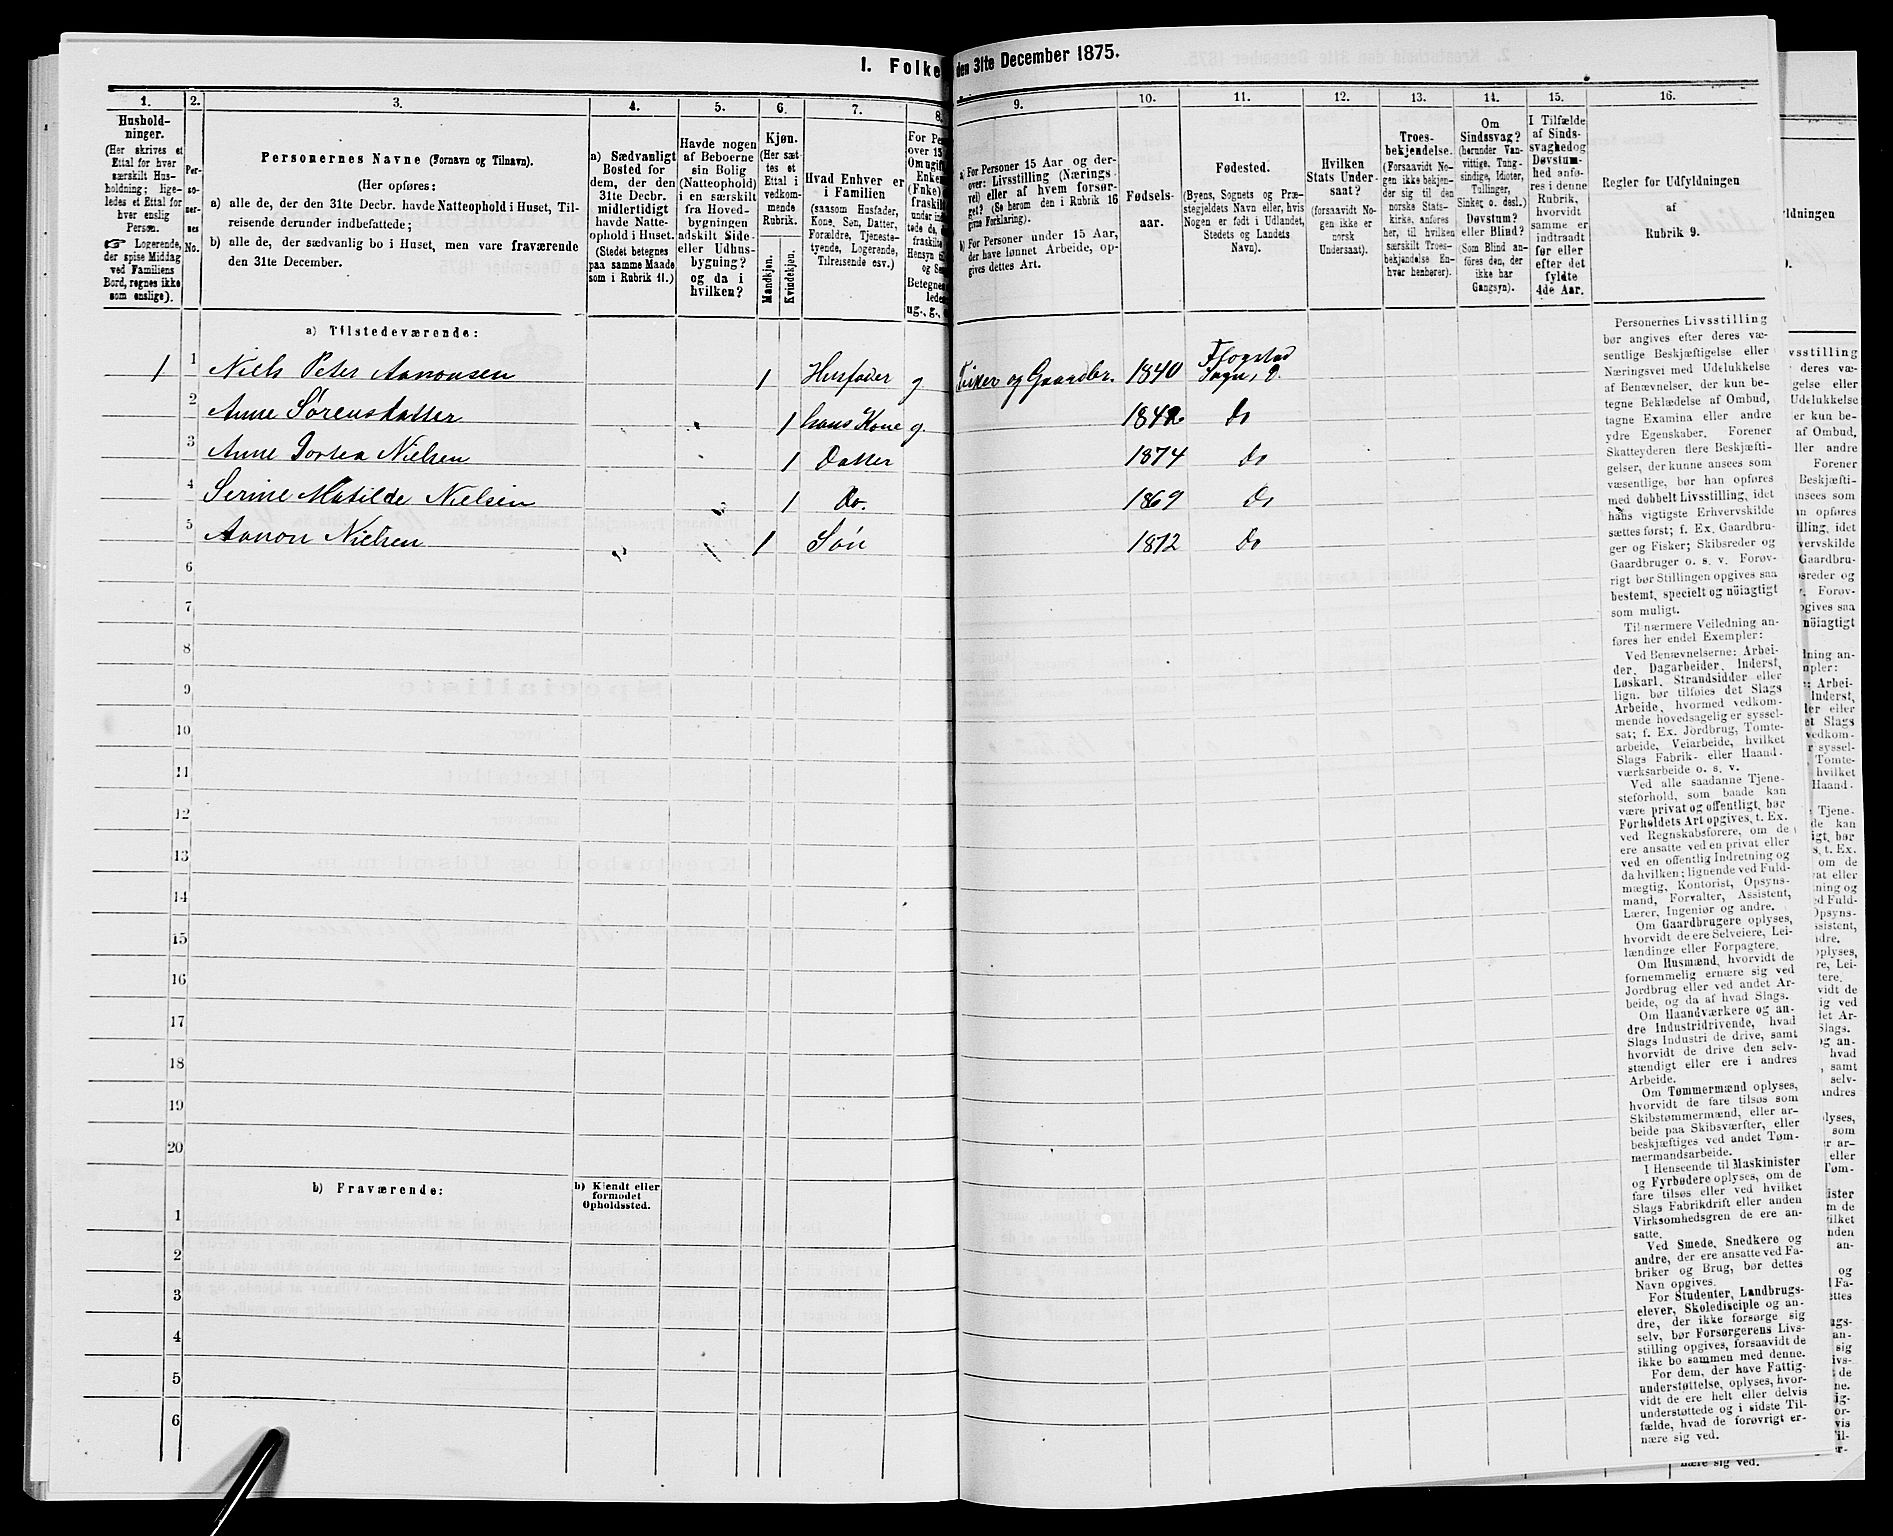 1. Folke
den 31te December 1875.
1.
2.
3.
4.
5.
6.
7.
8.
9.
10.
11.
12.
13.
14.
15.
16.
Hushold-
ninger.
(Her skrives et
Ettal for hver
særskilt Hus-
holdning; lige-
ledes et Ettal for
hver enslig
Person.
☞ Logerende,
der spise Middag
ved Familiens
Bord, regnes ikke
som enslige).
Per-
so-
ner-
nes
No.
Personernes Navne (Fornavn og Tilnavn).
(Her opføres:
a) alle de, der den 31te Decbr. havde Natteophold i Huset, Til-
reisende derunder indbefattede;
b) alle de, der sædvanlig bo i Huset, men vare fraværende
den 31te December.
a) Sædvanligt
Bosted for
dem, der den
31te Decbr.
midlertidigt
havde Natte-
ophold i Huset.
(Stedet betegnes
paa samme Maade
som i Rubrik 11.)
Havde nogen
af Beboerne
sin Bolig
(Natteophold)
i en særskilt
fra Hoved-
bygningen
adskilt Side-
eller Udhus-
bygning?
og da i
hvilken?
Kjøn.
(Her sæt-
tes et
Ettal i
vedkom-
mende
Rubrik.
Mandkjøn.
Kvindekjøn.
Hvad Enhver er
i Familien
(saasom Husfader,
Kone, Søn, Datter,
Forældre, Tjeneste-
tyende, Logerende,
Tilreisende osv.)
For Pe
over 15
Om ugift
Enke
(Fnke)
fraskilt
under
tede de,
fraskilte
Hensyn ti
og Se
Betegnes
lede
ug., g.,
a) For Personer 15 Aar og der-
over: Livsstilling (Nærings-
vei) eller af hvem forsør-
get? (Se herom den i Rubrik 16
givne Forklaring).
b) For Personer under 15 Aar,
der have lønnet Arbeide, op-
gives dettes Art.
Fødsels-
aar.
Fødested.
(Byens, Sognets og Præ-
stegjeldets Navn eller, hvis
Nogen er født i Udlandet,
Stedets og Landets
Navn).
Hvilken
Stats Under-
saat?
(forsaavidt No-
gen ikke er
norsk
Undersaat).
Troes-
bekjendelse.
(Forsaavidt No-
gen ikke bekjen-
der sig til den
norske Stats-
kirke, anføres
her, til hvilken
særskilt Troes-
bekjendelse En-
hver henhører).
Om
Sindssvag?
(herunder Van-
vittige, Tung-
sindige, Idioter,
Tullinger,
Sinker o. desl.)
Døvstum?
eller Blind?
(Som Blind an-
føres den, der
ikke har
Gangsyn).
I Tilfælde
af Sinds-
svaghed og
Døvstum-
hed anfø-
res i denne
Rubrik,
hvorvidt
samme er
indtraadt
før eller
efter det
fyldte
4de Aar.
Regler for Udfyldningen
af
Rubrik 9.
a) Tilstedeværende:
1 1 Niels Peter Aanonsen 1 Husfader g Fisker og Gaardbr. 1840 Fjogstad Sogn,
2 Anne Sørensdatter 1 hans Kone g. 1842 Do
3 Anne Dortea Nielsen 1 Datter 1874 Do
4 Serine Matilde Nielsen 1 Do. 1869 Do
5 Aanon Nielsen 1 Søn 1872 Do
6
7
8
9
10
11
12
13
14
15
16
17
18
19
20
b) Fraværende:
b) Kjendt eller
formodet
Opholdssted.
1
2
3
4
5
6
Personernes Livsstilling
bør angives efter deres væ-
sentlige Beskjæftigelse eller
Næringsvei med Udelukkelse
af Benævnelser, der kun be-
tegne Beklædelse af Ombud,
tagne Examina eller andre
ydre Egenskaber. Forener
Skatteyderen flere Beskjæfti-
gelser, der kunne ansees som
væsentlige, bør han opføres
med dobbelt Livsstilling, idet
hans vigtigste Erhvervskilde
sættes først; f. Ex. Gaardbru-
ger og Fisker; Skibsreder og
Gaardbruger o. s. v. Forøv-
rigt bør Stillingen opgives saa
bestemt, specielt og nöiagtigt
som muligt.
Til nærmere Veiledning an-
føres her endel Exempler:
Ved Benævnelserne: Arbei-
der, Dagarbeider, Inderst,
Løskarl, Strandsidder eller
lign. bør tilføies det Slags
Arbeide, hvormed vedkom-
mende hovedsagelig er syssel-
sat; f. Ex. Jordbrug, Tomte-
arbeide, Veiarbeide, hvilket
Slags Fabrik- eller Haand-
værksarbeide o. s. v.
Ved alle saadanne Tjene-
steforhold, som baade kan
være privat og offentligt, bør
Forholdets Art opgives, t. Ex.
ved Regnskabsførere, om de
ere ansatte ved en privat eller
ved en offentlig Indretning og
da hvilken; lignende ved Fuld-
mægtig, Kontorist, Opsyns-
mand, Forvalter, Assistent,
Lærer, Ingeniør og andre.
Om Gaardbrugere oplyses,
hvorvidt de ere Selveiere, Lei-
lændinge eller Forpagtere.
Om Husmænd, hvorvidt de
fornemmelig ernære sig ved
Jordbrug eller ved andet Ar-
beide, og da af hvad Slags.
Om Haandværkere og an-
dre Industridrivende, hvad
Slags Industri de drive, samt
hvorvidt de drive den selv-
stændigt eller ere i andres
Arbeide.
Om Tømmermænd oplyses,
hvorvidt de fare tilsøs som
Skibstømmermænd, eller ar-
beide paa Skibsværfter, eller
beskjæftiges ved andet Tøm-
mermandsarbeide.
I Henseende til Maskinister
og Fyrbødere oplyses, om de
fare tilsøs eller ved hvilket
Slags Fabrikdrift eller anden
Virksomhedsgren de ere an-
satte.
Ved Smede, Snedkere og
andre, der ere ansatte ved Fa-
briker og Brug, bør dettes
Navn opgives.
For Studenter, Landbrugs-
elever, Skoledisciple og an-
dre, der ikke forsørge sig
selv, bør Forsørgerens Livs-
stilling opgives, forsaavidt de
ikke bo sammen med denne.
For dem, der have Fattig-
understøttelse, oplyses, hvor-
vidt de ere helt eller delvis
understøttede og i sidste Til-
fælde, hvad de forøvrigt er-
nære sig ved.